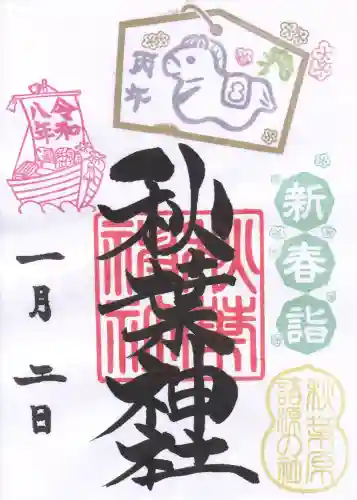 丙午
新春詣
秋葉原
諸源の社
秋葉神社
令和
八年
一月二日